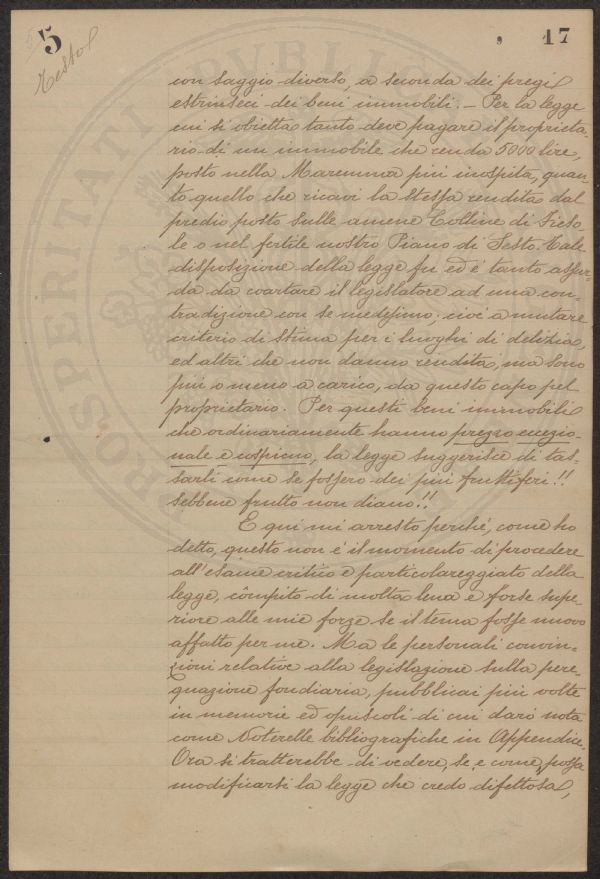 5
17
Testo
con saggio diverso, a seconda dei pregi
estrinseci dei beni immobili. — Per la legge
cui si obietta tanto deve pagare il proprieta-
rio di un immobile che renda 5000 lire,
posto nella Maremma più inospita, quan-
to quello che ricavi la stessa rendita dal
predio posto sulle amene Colline di Fieso-
le o nel fertile nostro Piano di Sesto. Tale
disposizione della legge fu ed è tanto assur-
da da coartare il legislatore ad una con-
tradizione con se medesimo; cioè a mutare
criterio di stima per i luoghi di delizia,
ed altri che non danno rendita, ma sono
più o meno a carico, da questo capo pel
proprietario. Per questi beni immobili
che ordinariamente hanno prezzo eccezio-
nale e cospicuo, la legge suggerisce di tas-
sarli come se fossero dei più fruttiferi!!
sebbene frutto non diano!!
E qui mi arresto perché, come ho
detto, questo non è il momento di procedere
all'esame critico e particolareggiato della
legge, còmpito di molta lena e forse supe-
riore alle mie forze se il tema fosse nuovo
affatto per me. Ma le personali convin-
zioni relative alla legislazione sulla pere-
quazione fondiaria, pubblicai più volte
in memorie ed opuscoli di cui darò nota
come Noterelle bibliografiche in Appendice.
Ora si tratterebbe di vedere, se e come, possa
modificarsi la legge che credo difettosa,
PROSPERITATI PUBLICAE